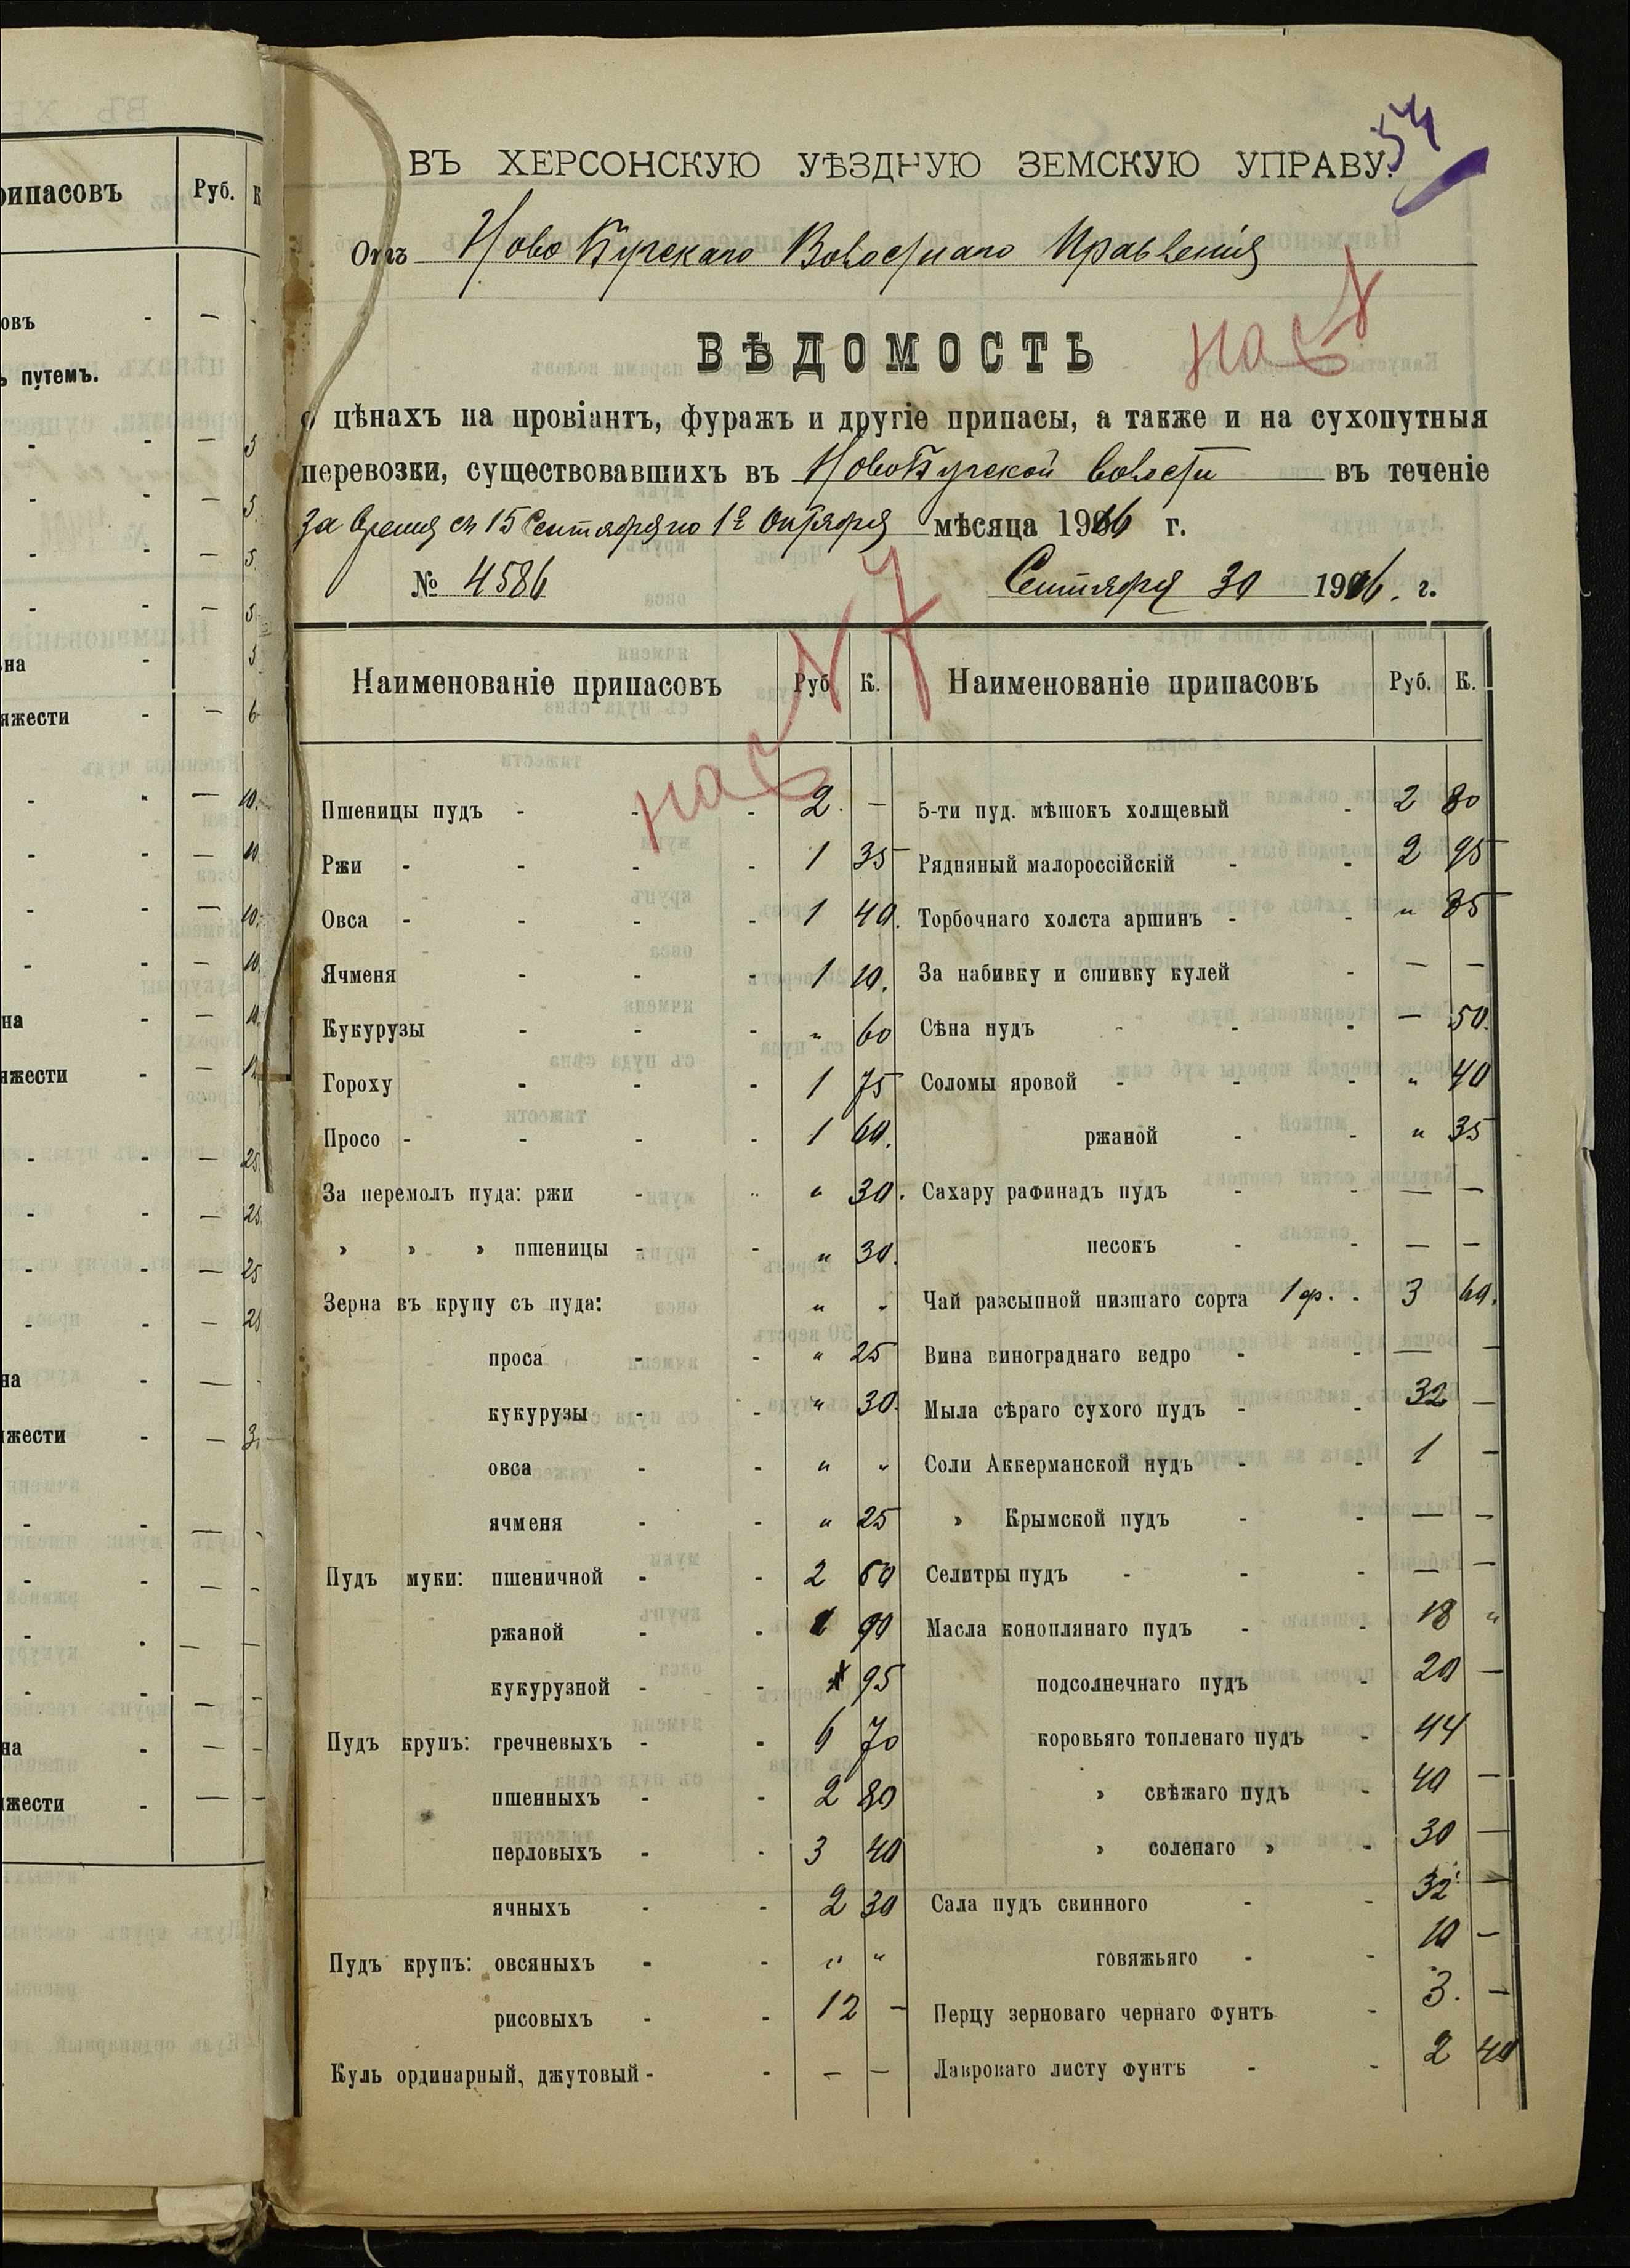 рипасовъ Руб. К
овъ - — -
ь путемъ.
- - — 5
- - — 5.
- - — 5.
- - — 5.
на - 5
яжести - — 6
- - — 10.
- - — 10.
- - — 10.
- - — 10.
на - — 10.
яжести - —
- - — 25.
- - — 25.
- - — 25
- - — 25
на - —
яжести - —
на - — -
яжести - — -
54
ВЪ ХЕРСОНСКУЮ УѢЗДНУЮ ЗЕМСКУЮ УПРАВУ.
Отъ Ново Бугскаго Волостнаго Правленія
ВѢДОМОСТЬ
о цѣнахъ на провіантъ, фуражъ и другіе припасы, а также и на сухопутныя
перевозки, существовавшихъ въ НовоБугской волости въ теченіе
За время съ 15 Сентября по 1е Октября мѣсяца 1916 г.
№ 4586 Сентября 30 1916. г.
Наименованіе припасовъ Руб. К. Наименованіе припасовъ Руб. К.
Пшеницы пудъ - - - 2. — 5-ти пуд. мѣшокъ холщевый - 2 80
Ржи - - - - 1 35 Рядняный малороссійскій - - 2 95
Овса - - - - 1 40. Торбочнаго холста аршинъ - - „ 85
Ячменя - - - 1 10. За набивку и сшивку кулей - — —
Кукурузы - - - „ 60 Сѣна пудъ - - - — 50.
Гороху - - - 1 75 Соломы яровой - - - „ 40
Просо - - - - 1 60. ржаной - - „ 35
За перемолъ пуда: ржи - - „ 30. Сахару рафинадъ пудъ - - — —
» » » пшеницы - - „ 30. песокъ - - — —
Зерна въ крупу съ пуда: „ „ Чай разсыпной низшаго сорта 1 ф. - 3 60.
проса - - „ 25 Вина винограднаго ведро - - — —
кукурузы - - „ 30. Мыла сѣраго сухого пудъ - - 32 —
овса - - „ „ Соли Аккерманской пудъ - - 1 —
ячменя - - „ 25 » Крымской пудъ - - — —
Пудъ муки: пшеничной - - 2 60 Селитры пудъ - - - — —
ржаной - - 1 90 Масла коноплянаго пудъ - - 18 „
кукурузной - - 95 подсолнечнаго пудъ - 20 —
Пудъ крупъ: гречневыхъ - - 6 70 коровьяго топленаго пудъ - 44
пшенныхъ - - 2 80 » свѣжаго пудъ - 40 —
перловыхъ - - 3 40 » соленаго » - 30 —
ячныхъ - - 2 30 Сала пудъ свинного - - 32 —
Пудъ крупъ: овсяныхъ - - „ „ говяжьяго - - 10 —
рисовыхъ - - 12 — Перцу зерноваго чернаго фунтъ - 3. —
Куль ординарный, джутовый - - — — Лавроваго листу фунтъ - - 2 40